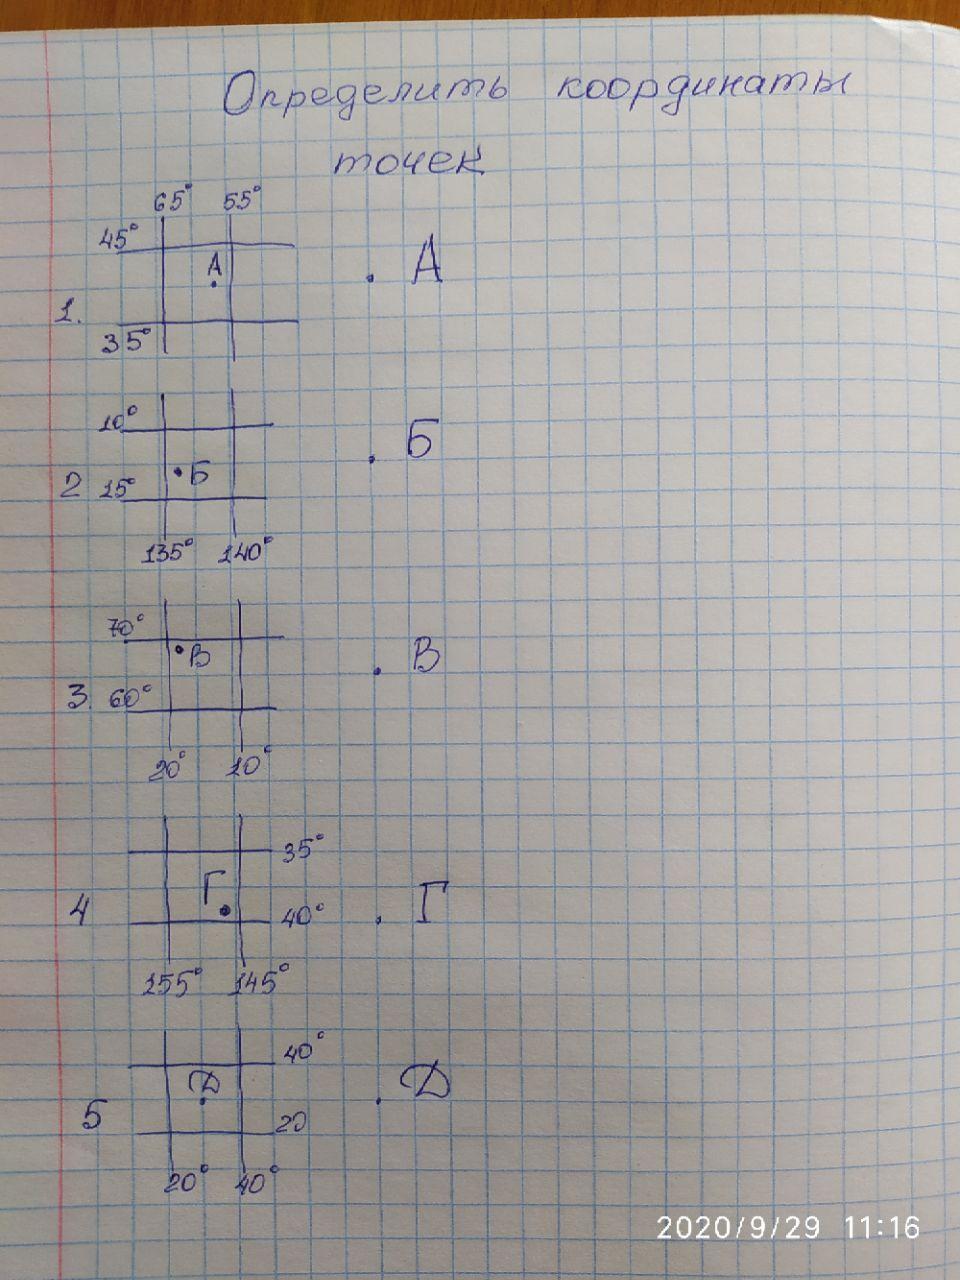 Определить координаты
точек
65° 55°
45°
А
. А
1.
35°
10°
. Б
.Б
2 15°
135° 140°
70°
.В
. В
3. 60°
20° 10°
35°
Г
4 40° . Г
155° 145°
40°
Д . Д
5 20
20° 40°
2020/9/29 11:16